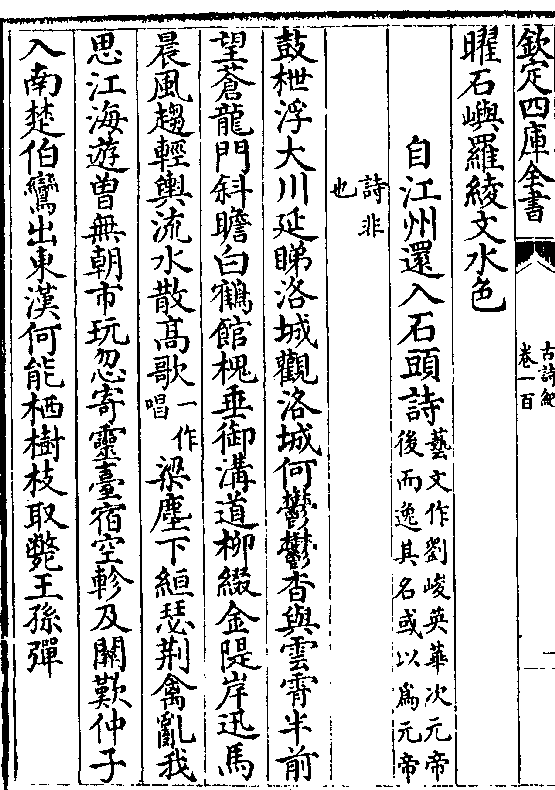 欽定四庫全書
古詩紀
卷一百
一
曜石嶼羅綾文水色
自江州還入石頭詩藝文作劉峻英華次元帝
後而逸其名或以為元帝
詩非
也
鼓枻浮大川延睇洛城觀洛城何鬱鬱杳與雲霄半前
望蒼龍門斜瞻白鶴館槐垂御溝道柳綴金隄岸迅馬
晨風趨輕輿流水散髙歌一作
唱梁塵下絙瑟荆禽亂我
思江海遊曽無朝市玩忽寄靈臺宿空軫及關歎仲子
入南楚伯鸞出東漢何能栖樹枝取斃王孫彈